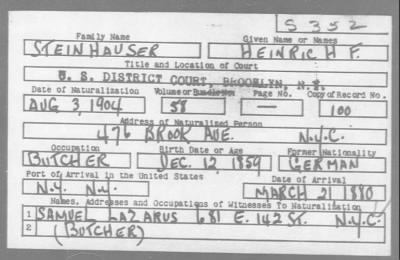 S352
Family Name Given Name or Names
STEINHAUSER HEINRICH F.
Title and Location of Court
U. S. DISTRICT COURT, BROOKLYN, N.Y.
Date of Naturalization Volume or Bundle No. Page No. Copy of Record No.
AUG 3, 1904 58 — 100
Address of Naturalized Person
476 BROOK AVE. N.Y.C.
Occupation Birth Date or Age Former Nationality
BUTCHER DEC. 12 1859 GERMAN
Port of Arrival in the United States Date of Arrival
N.Y. N.Y. MARCH 21 1880
Names, Addresses and Occupations of Witnesses To Naturalization
1 SAMUEL LAZARUS 681 E. 142 ST. N.Y.C.
2 (BUTCHER)